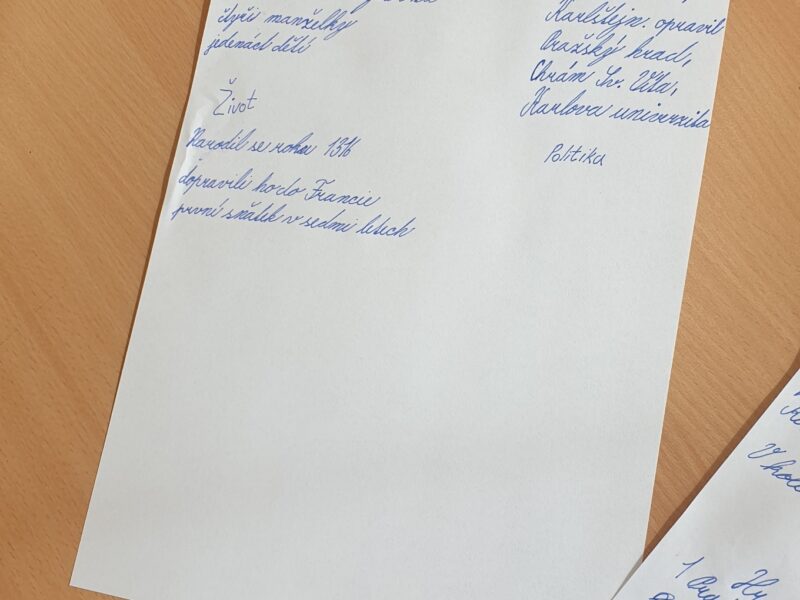 čtyři manželky
jedenáct dětí
Život
Narodil se roku 1316
dopravili ho do Francie
první sňatek v sedmi letech
Karlštejn. opravil
Pražský hrad,
Chrám sv. Víta,
Karlova univerzita
Politika